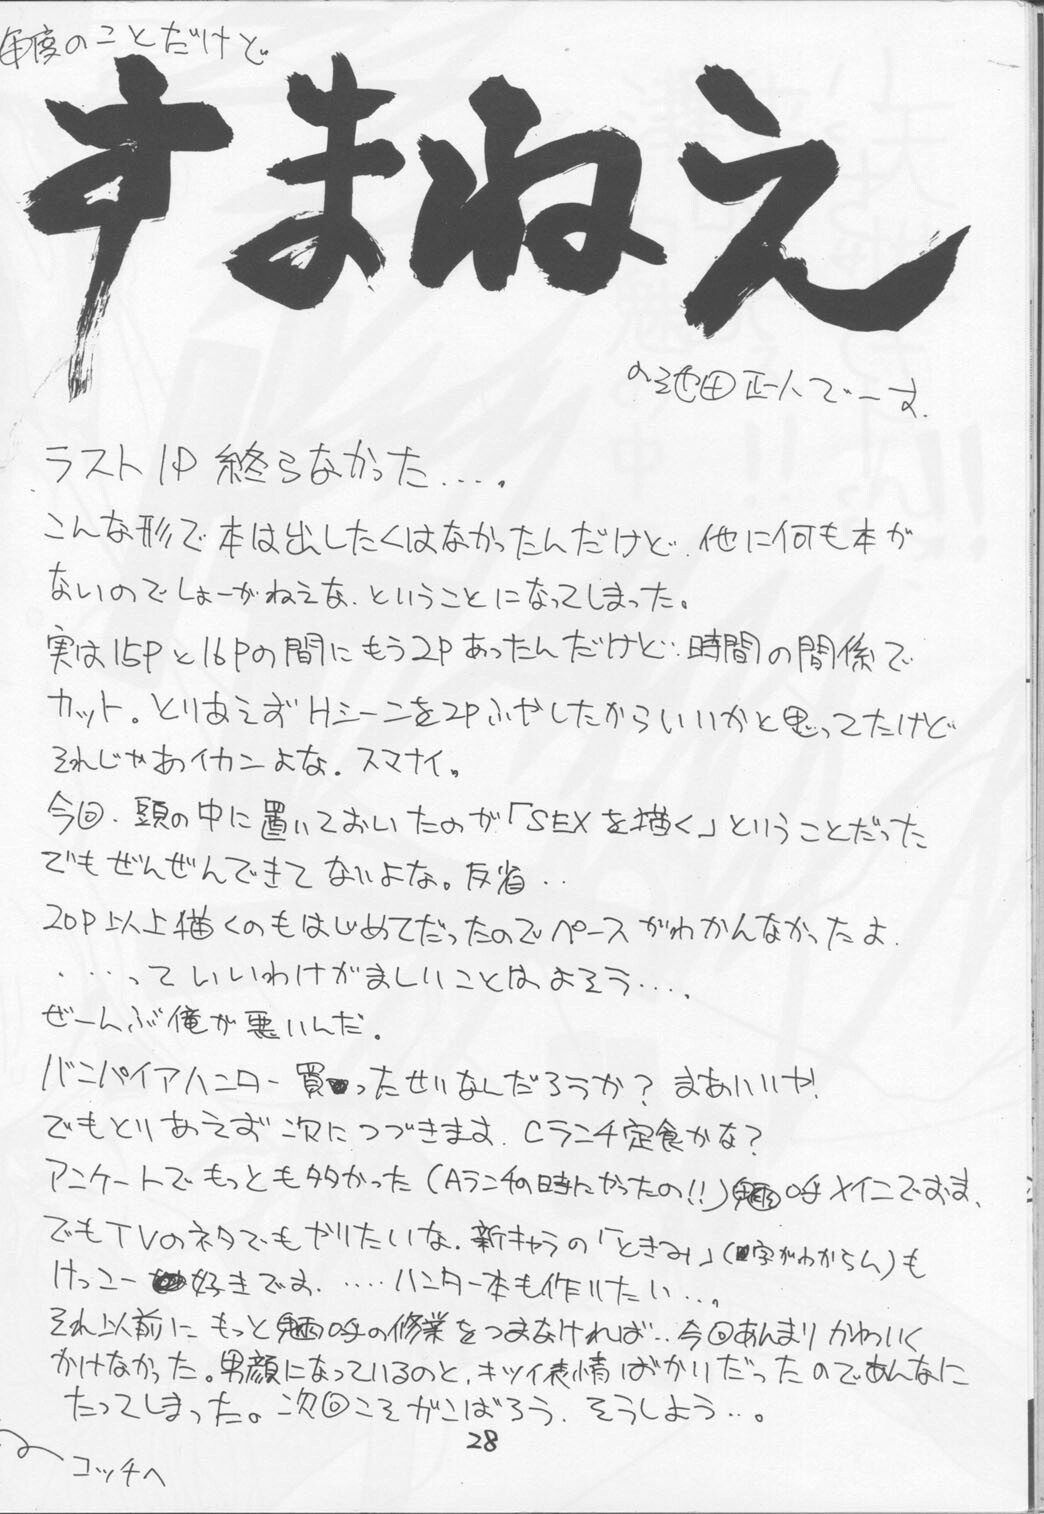 年度のことだけど
すまねえ
の池田正人でーす.
ラスト1P 終らなかった.....
こんな形で本は出したくはなかったんだけど、他に何も本が
ないのでしょーがねえな、ということになってしまった。
実は15Pと16Pの間にもう2Pあったんだけど、時間の関係で
カット。とりあえずHシーンを2Pふやしたからいいかと思ってたけど
それじゃあイカンよな。スマナイ。
今回、頭の中に置いておいたのが「SEXを描く」ということだった
でもぜんぜんできてないよな。反省..
20P以上描くのもはじめてだったのでペースがわかんなかったよ.
....っていいわけがましいことはよそう....
ぜーんぶ俺が悪いんだ.
バンパイアハンター買ったせいなんだろうか？まあいいや!
でもとりあえず次につづきます. Cランチ定食かな？
アンケートでもっとも多かった(Aランチの時にかったの!!)魎呼メインでおま、
でもTVのネタでもやりたいな.新キャラの「ときみ」(字がわからん)も
けっこー好きです.....ハンター本も作りたい...
それ以前にもっと魎呼の修業をつまなければ..今回あんまりかわいく
かけなかった。男顔になっているのと、キツイ表情ばかりだったのであんなに
たってしまった。次回こそがんばろう.そうしよう...
28
コッチへ